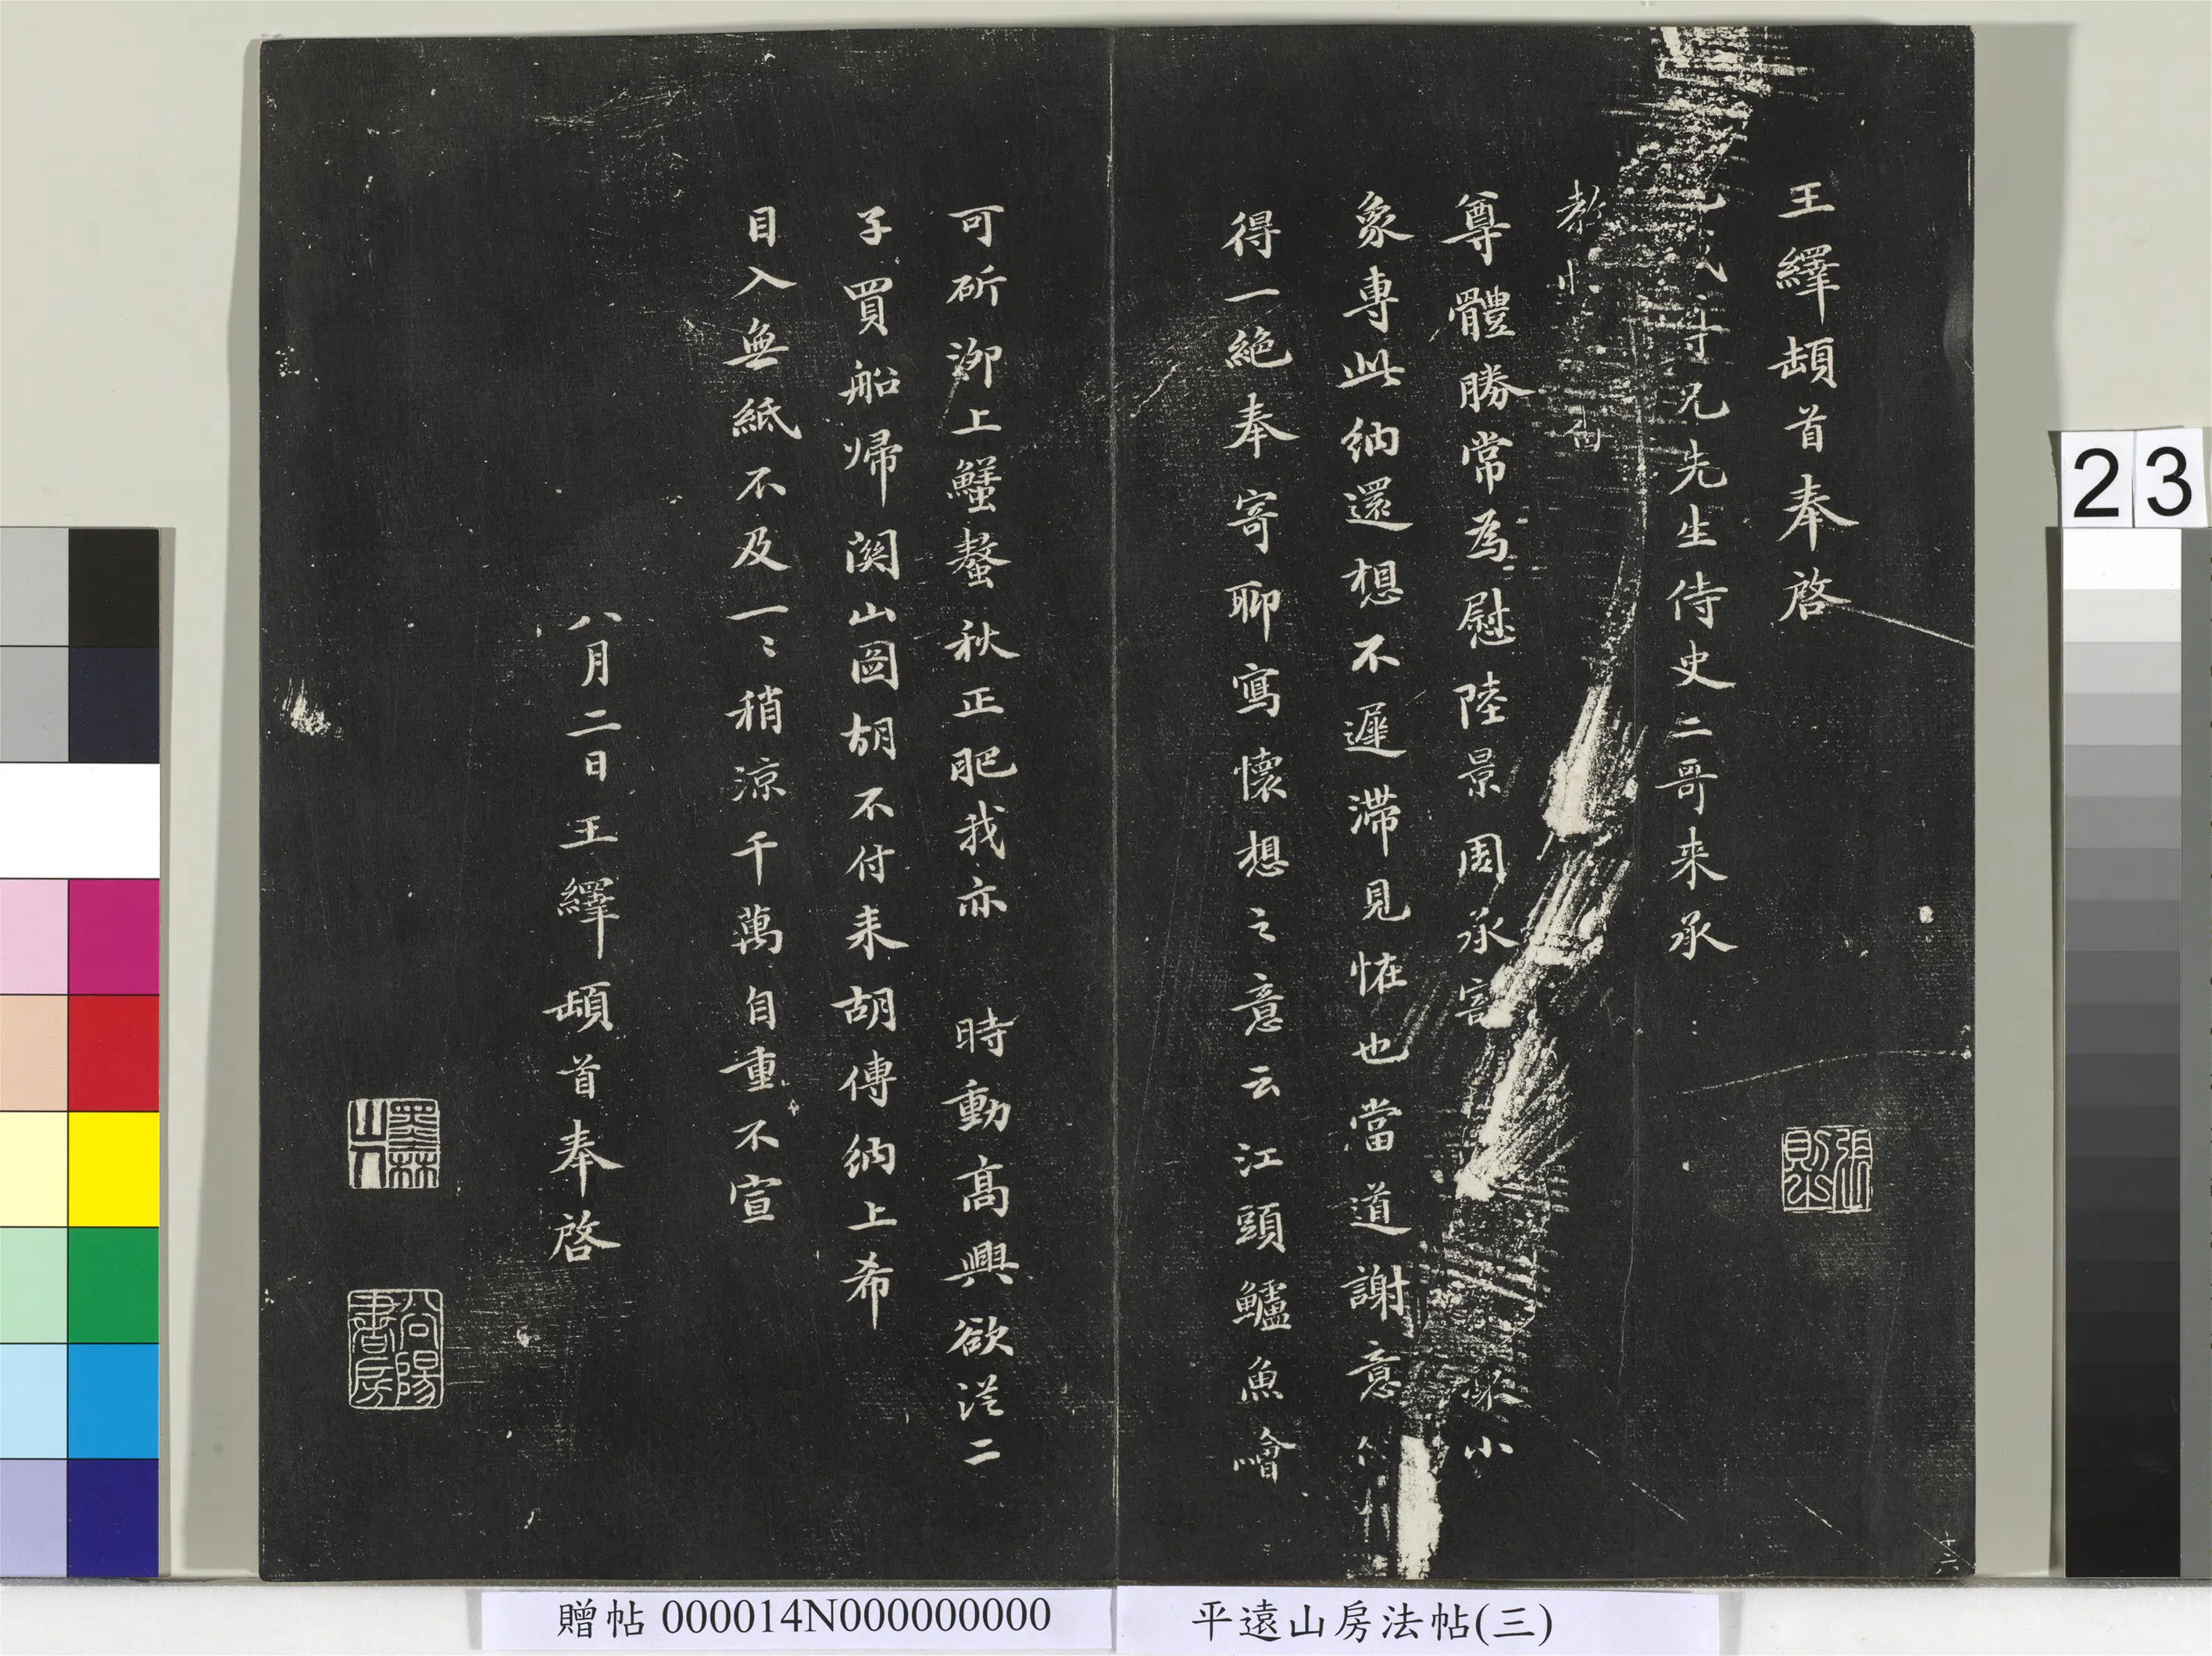 王繹頓首奉啓
兄先生侍史二哥来承
教
尊體勝常為慰陸景周承寄小
象専此納還想不遲滯見怪也當道謝意
得一絶奉寄聊寫懷想之意云江頭鱸魚噲
可斫泖上蟹螯秋正肥我亦時動髙興欲從二
子買船歸関山圖胡不付来胡傳納上希
目入無紙不及一〻稍涼千萬自重不宣
八月二日王繹頓首奉啓
墨林山人
十六
23
平遠山房法帖(三)
贈帖 000014N000000000